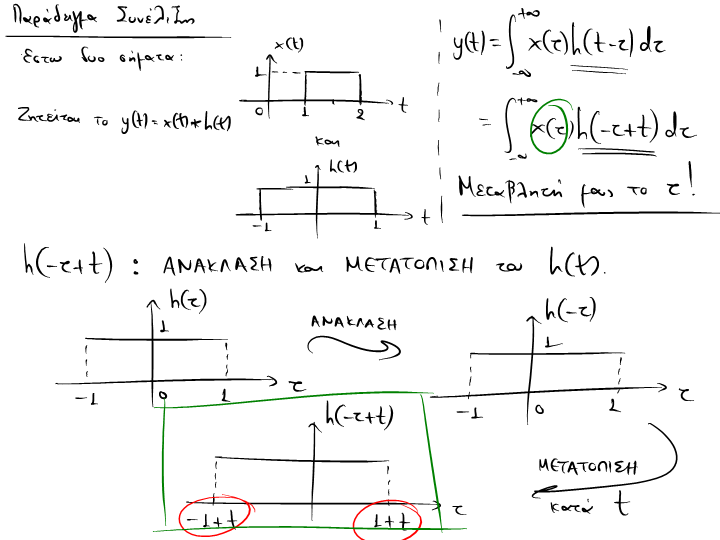 Παράδειγμα Συνέλιξης
Έστω δυο σήματα:
x(t)
1
0 1 2 t
Ζητείται το y(t) = x(t) * h(t)
και
h(t)
1
-1 1 t
y(t) = ∫_{-∞}^{+∞} x(τ) h(t-τ) dτ
= ∫_{-∞}^{+∞} x(τ) h(-τ+t) dτ
Μεταβλητή μας το τ!
h(-τ+t) : ΑΝΑΚΛΑΣΗ και ΜΕΤΑΤΟΠΙΣΗ του h(t).
h(τ)
1
-1 0 1 τ
ΑΝΑΚΛΑΣΗ
h(-τ)
1
-1 0 1 τ
h(-τ+t)
-1+t 1+t τ
ΜΕΤΑΤΟΠΙΣΗ
κατά t